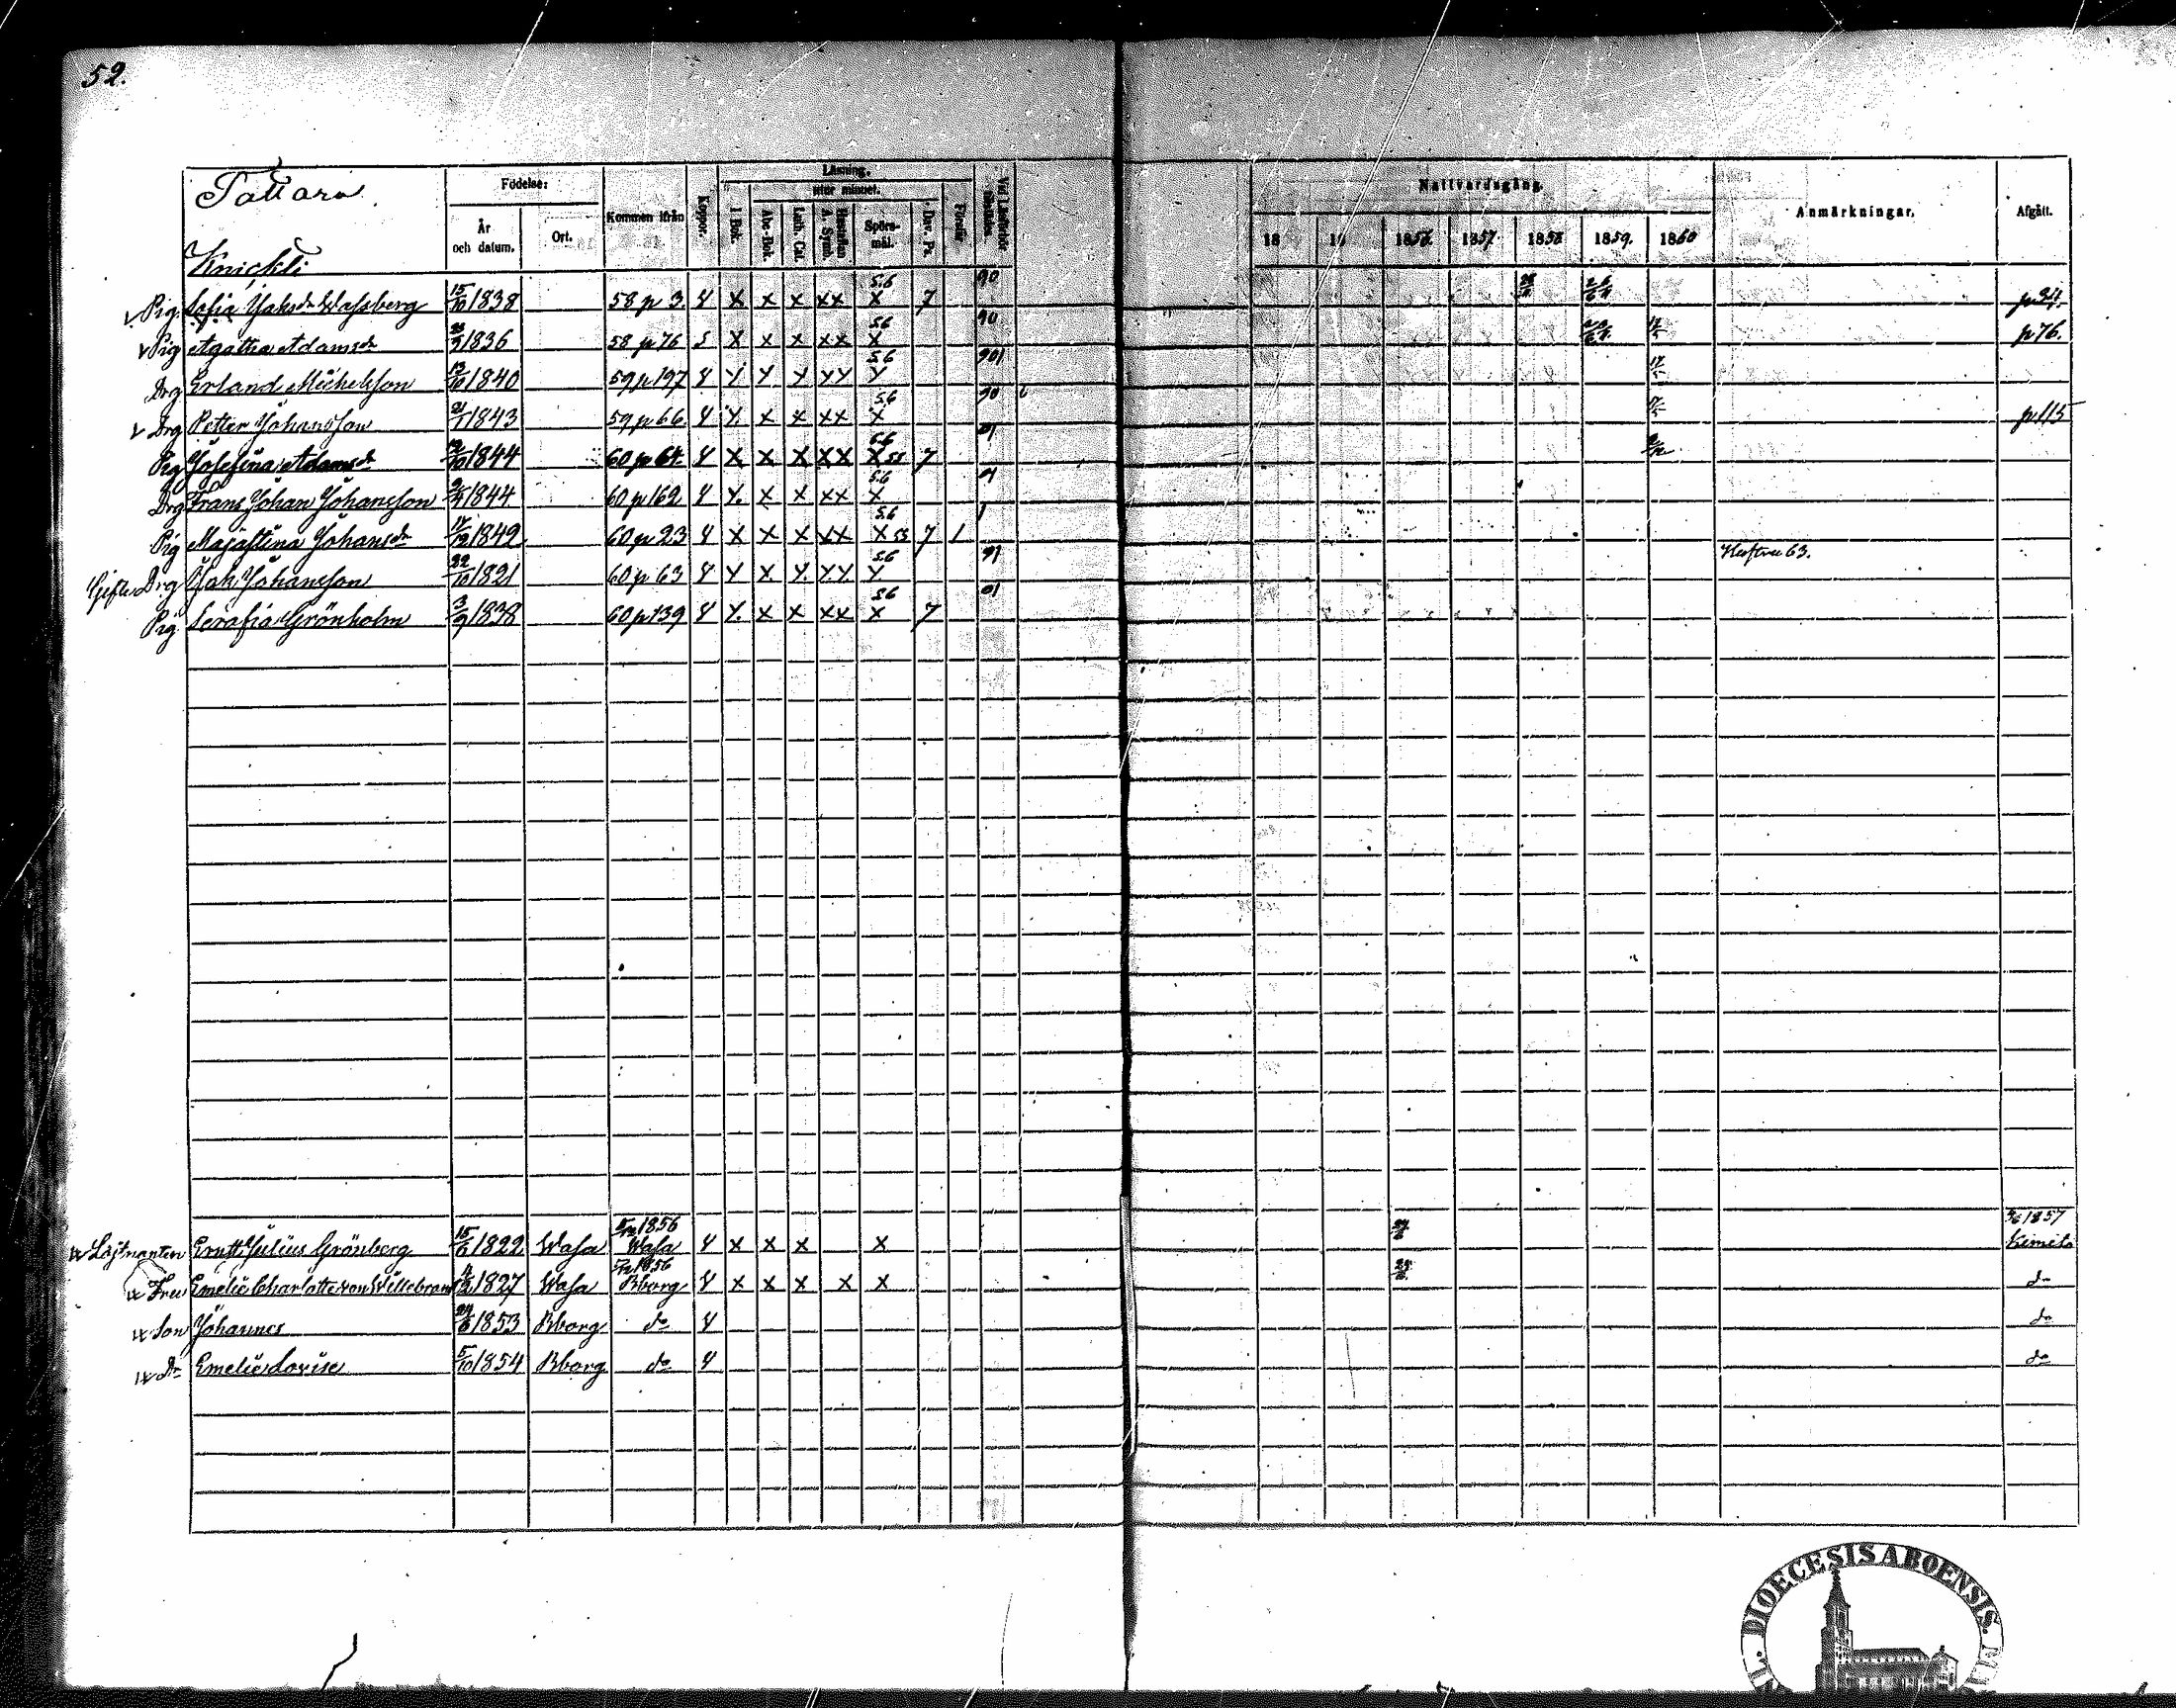 52.
Tattara
Knickti
Födelse:
År och datum.
Ort.
Kommen ifrån
Koppor.
Läsning.
utur minnet.
I Bok.
Abc-Bok.
Luth. Cat.
Hustaflan A. Symb.
Spörs-mål.
Dav. Ps.
Förstår
Nattvardsgång.
18 18 1856. 1857. 1858 1859. 1860
Anmärkningar.
Afgått.
Pig. Sofia Jaksdr Wassberg 15/10 1838 58 p 3. 4 x x x xx 5.6 x 7 90 p 24.
Pig Agatha Adamsdr 1836 58 p 76 5 x x x xx 5.6 x 90 p 76.
Drg Erland Michelsson 13/10 1840 59 p 197 4 x x x xx 5.6 x 901
Drg Petter Johansson 21/1 1843 59 p 66 4 x x x xx 5.6 x 90 p 115
Pig Josefina Adamsdr 1844 60 p 64 4 x x x xx x 53 7 01
Drg Frans Johan Johansson 1844 60 p 162 4 x x x xx 5.6 x
Pig Majastina Johansdr 1842 60 p 23 4 x x x xx 5.6 x 53 7 1 1
Gifte Drg Jak Johansson 22/10 1821 60 p 63 4 x x x xx 5.6 x 91 Hustru 63.
Pig Serafia Grönholm 3/9 1838 60 p 139 4 x x x xx 5.6 x 7 01
Löjtnanten Knut Julius Grönberg 15/6 1822 Wasa 1856 Wasa 4 x x x x 1857 Kimito
Fru Emelie Charlotte von Willebrand 1827 Wasa 1856 Bborg 4 x x x x x do
Son Johannes 24/6 1853 Bborg do 4 do
Dr Emelie Lovise 5/10 1854 Bborg do 4 do
DIOECESIS ABOENSIS.